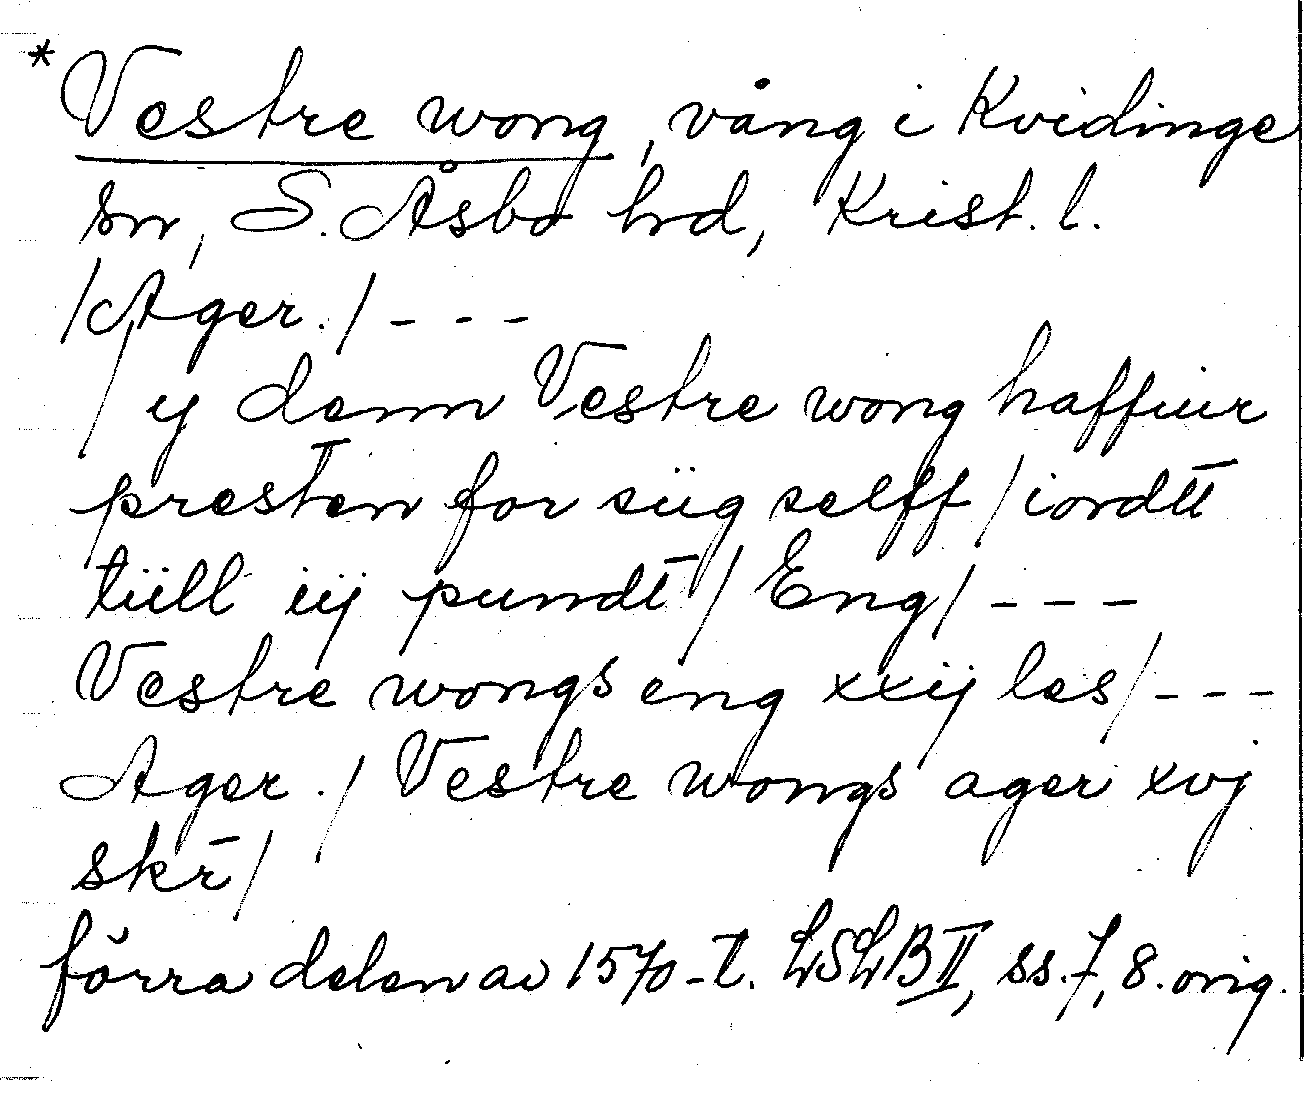 *Vestre wong, vång i Kvidinge
sn, S. Åsbo hd, Krist. l.
/Ager./ - - -
/ y denn Vestre wong haffuer
presten for siig selff / iordtt
tiill iij pundt / Eng / - - -
Vestre wongs eng xxij les / - - -
Ager. / Vestre wongs ager xvj
skr̄ /
förra delen av 1570-t. LSLB II, ss. 7, 8. orig.